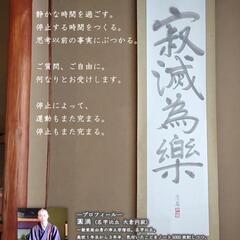 静かな時間を過ごす。
停止する時間をつくる。
思考以前の事実にぶつかる。
ご質問、ご自由に。
何なりとお受けします。
停止によって、
運動もまた完まる。
停止もまた完まる。
寂滅為樂
―プロフィール―